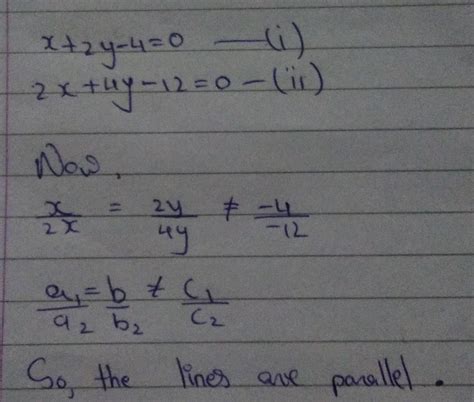 x+2y-4=0 —(i)
2x+4y-12=0 -(ii)
Now,
x/2x = 2y/4y ≠ -4/-12
a₁/a₂ = b/b₂ ≠ C₁/C₂
So, the lines are parallel.